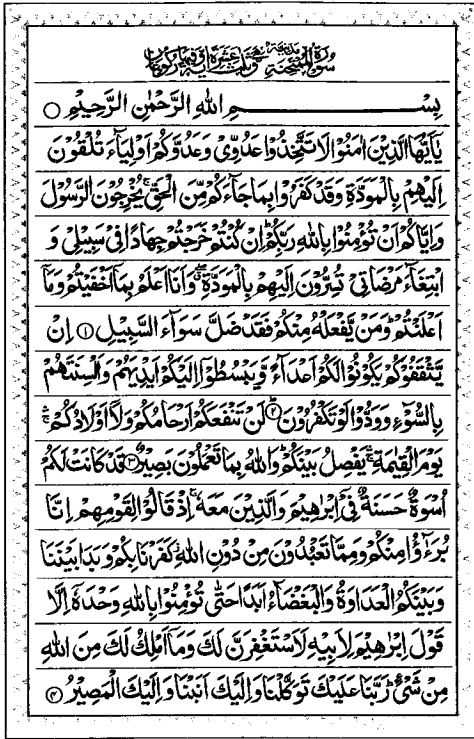 سُوْرَةُ الْمُمْتَحِنَةِ مَدَنِيَّةٌ وَّهِىَ ثَلٰثَ عَشْرَةَ اٰيَةً وَّفِيْهَا رُكُوْعَانِ
بِسْمِ اللهِ الرَّحْمٰنِ الرَّحِيْمِ ○
يٰٓاَيُّهَا الَّذِيْنَ اٰمَنُوْا لَا تَتَّخِذُوْا عَدُوِّىْ وَعَدُوَّكُمْ اَوْلِيَآءَ تُلْقُوْنَ
اِلَيْهِمْ بِالْمَوَدَّةِ وَقَدْ كَفَرُوْا بِمَا جَآءَكُمْ مِّنَ الْحَقِّ ۚ يُخْرِجُوْنَ الرَّسُوْلَ
وَاِيَّاكُمْ اَنْ تُؤْمِنُوْا بِاللهِ رَبِّكُمْ ؕ اِنْ كُنْتُمْ خَرَجْتُمْ جِهَادًا فِىْ سَبِيْلِىْ وَ
ابْتِغَآءَ مَرْضَاتِىْ تُسِرُّوْنَ اِلَيْهِمْ بِالْمَوَدَّةِ ۖ وَاَنَا اَعْلَمُ بِمَآ اَخْفَيْتُمْ وَمَآ
اَعْلَنْتُمْ ؕ وَمَنْ يَّفْعَلْهُ مِنْكُمْ فَقَدْ ضَلَّ سَوَآءَ السَّبِيْلِ ﴿۱﴾ اِنْ
يَّثْقَفُوْكُمْ يَكُوْنُوْا لَكُمْ اَعْدَآءً وَّيَبْسُطُوْٓا اِلَيْكُمْ اَيْدِيَهُمْ وَاَلْسِنَتَهُمْ
بِالسُّوْٓءِ وَوَدُّوْا لَوْ تَكْفُرُوْنَ ؕ﴿۲﴾ لَنْ تَنْفَعَكُمْ اَرْحَامُكُمْ وَلَآ اَوْلَادُكُمْ ۛۚ
يَوْمَ الْقِيٰمَةِ ۛۚ يَفْصِلُ بَيْنَكُمْ ؕ وَاللهُ بِمَا تَعْمَلُوْنَ بَصِيْرٌ ﴿۳﴾ قَدْ كَانَتْ لَكُمْ
اُسْوَةٌ حَسَنَةٌ فِىْٓ اِبْرٰهِيْمَ وَالَّذِيْنَ مَعَهٗ ۚ اِذْ قَالُوْا لِقَوْمِهِمْ اِنَّا
بُرَءٰٓؤُا مِنْكُمْ وَمِمَّا تَعْبُدُوْنَ مِنْ دُوْنِ اللهِ ۫ كَفَرْنَا بِكُمْ وَبَدَا بَيْنَنَا
وَبَيْنَكُمُ الْعَدَاوَةُ وَالْبَغْضَآءُ اَبَدًا حَتّٰى تُؤْمِنُوْا بِاللهِ وَحْدَهٗٓ اِلَّا
قَوْلَ اِبْرٰهِيْمَ لِاَبِيْهِ لَاَسْتَغْفِرَنَّ لَكَ وَمَآ اَمْلِكُ لَكَ مِنَ اللهِ
مِنْ شَىْءٍ ؕ رَبَّنَا عَلَيْكَ تَوَكَّلْنَا وَاِلَيْكَ اَنَبْنَا وَاِلَيْكَ الْمَصِيْرُ ﴿۴﴾